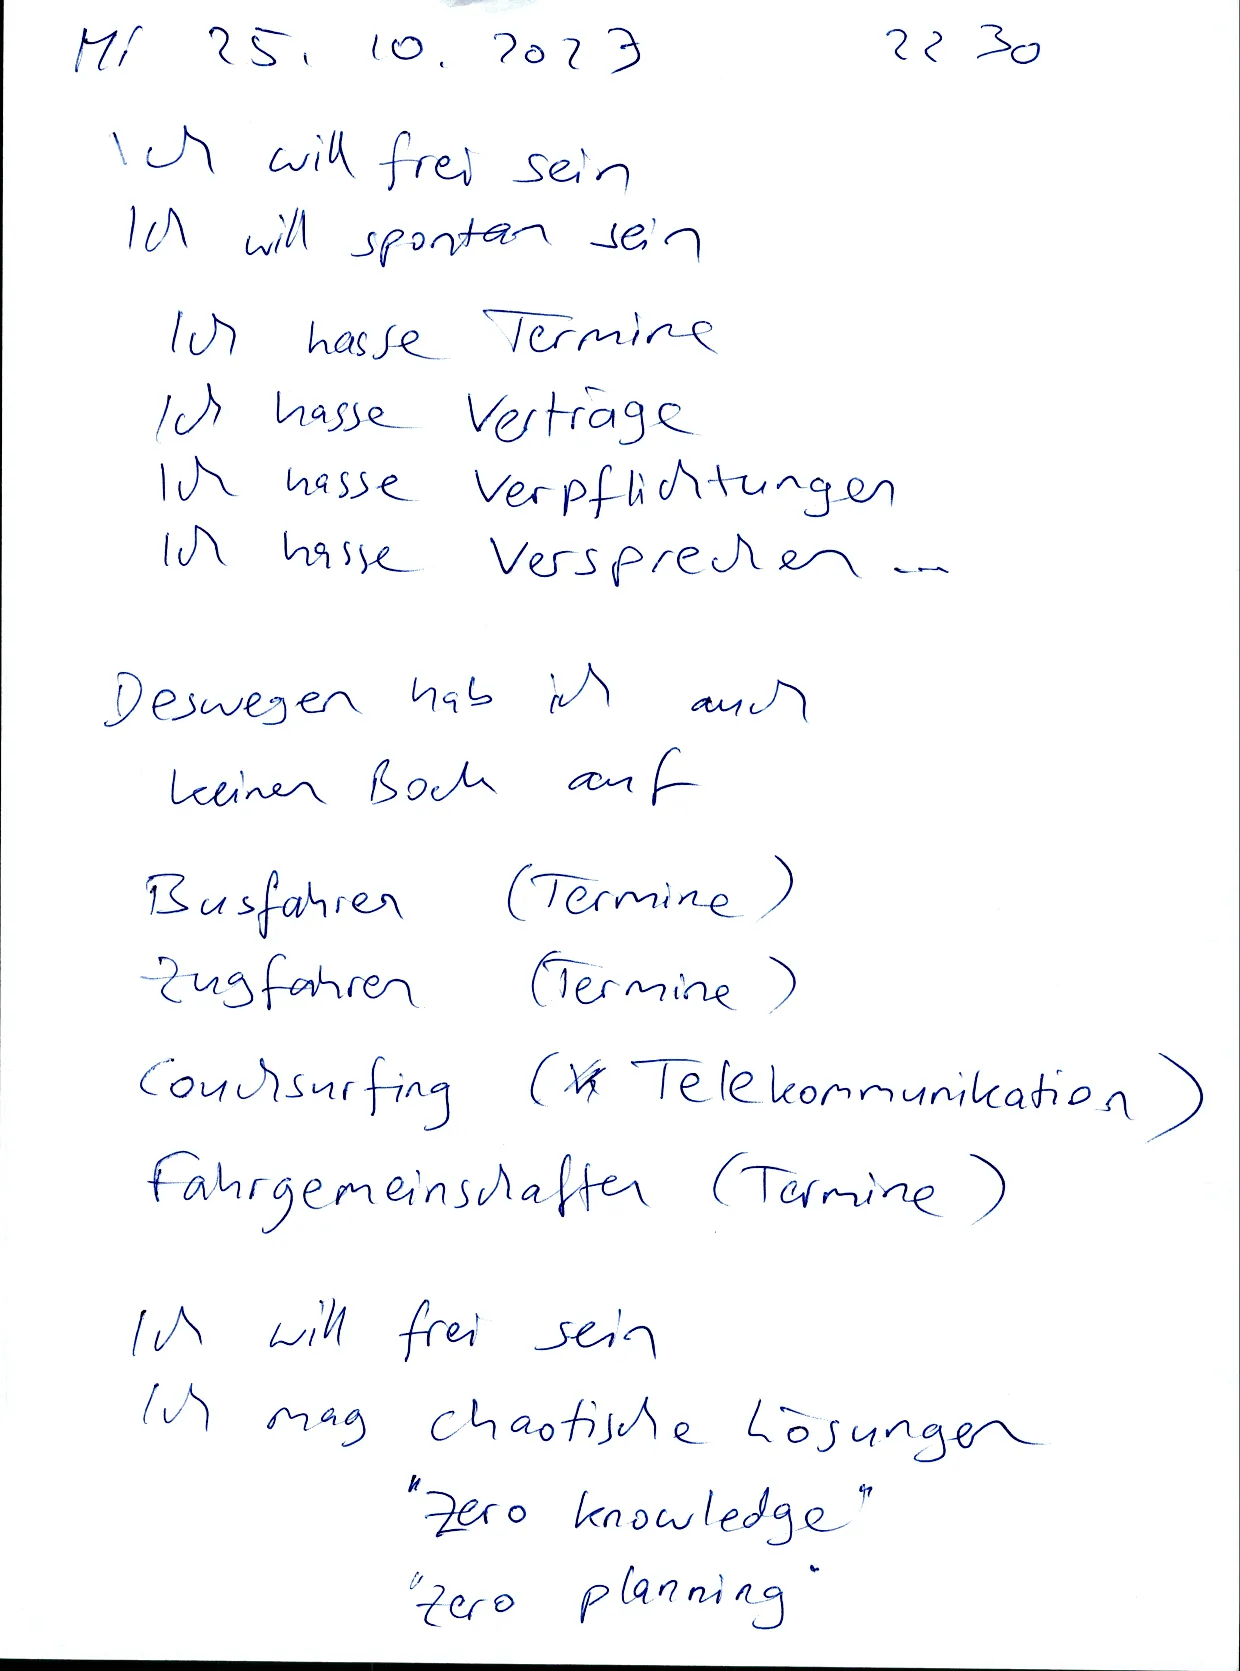 Mi 25. 10. 2023 22 30
Ich will frei sein
Ich will spontan sein
Ich hasse Termine
Ich hasse Verträge
Ich hasse Verpflichtungen
Ich hasse Versprechen ...
Deswegen hab ich auch
keinen Bock auf
Busfahren (Termine)
Zugfahren (Termine)
Couchsurfing (Telekommunikation)
Fahrgemeinschaften (Termine)
Ich will frei sein
Ich mag chaotische Lösungen
"zero knowledge"
"zero planning"